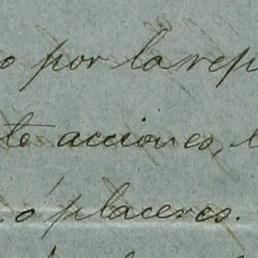 o por la rep
te acciones,
ó placeres.